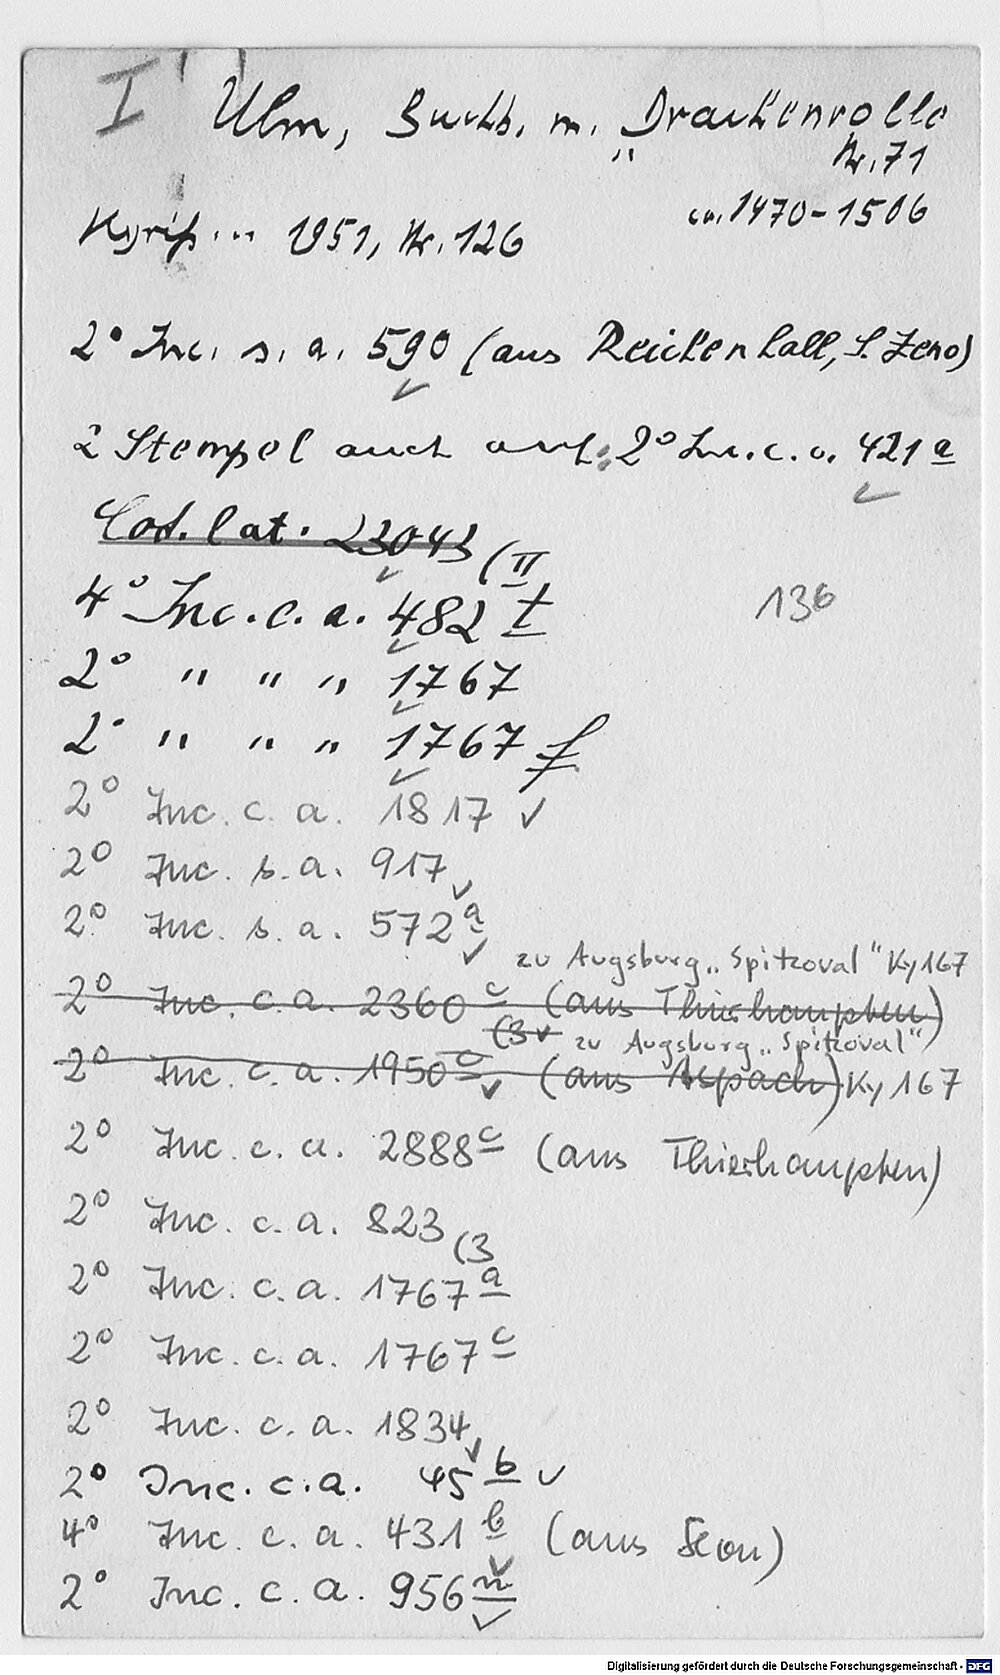 I
Ulm, Buchb. m. „Drachenrolle
Nr. 71
ca. 1470-1506
Kyriß ... 1951, Nr. 126
2° Inc. s. a. 590 (aus Reichenhall, S. Zeno)
2 Stempel auch auf: 2° Inc. c. a. 421 a
Cod. lat. 23043 (II
136
4° Inc. c. a. 482 t
2° " " " 1767
2° " " " 1767 f
2° Inc. c. a. 1817 ✓
2° Inc. s. a. 917 ✓
2° Inc. s. a. 572 a ✓
zu Augsburg „Spitzoval" Ky 167
2° Inc. c. a. 2360 c (aus Thierhaupten)
(3 ✓ zu Augsburg „Spitzoval"
2° Inc. c. a. 1950 c ✓ (aus Aspach) Ky 167
2° Inc. c. a. 2888 c (aus Thierhaupten)
2° Inc. c. a. 823 (3
2° Inc. c. a. 1767 a
2° Inc. c. a. 1767 c
2° Inc. c. a. 1834 ✓
2° Inc. c. a. 45 b ✓
4° Inc. c. a. 431 b (aus Seon)
2° Inc. c. a. 956 n ✓
Digitalisierung gefördert durch die Deutsche Forschungsgemeinschaft - DFG